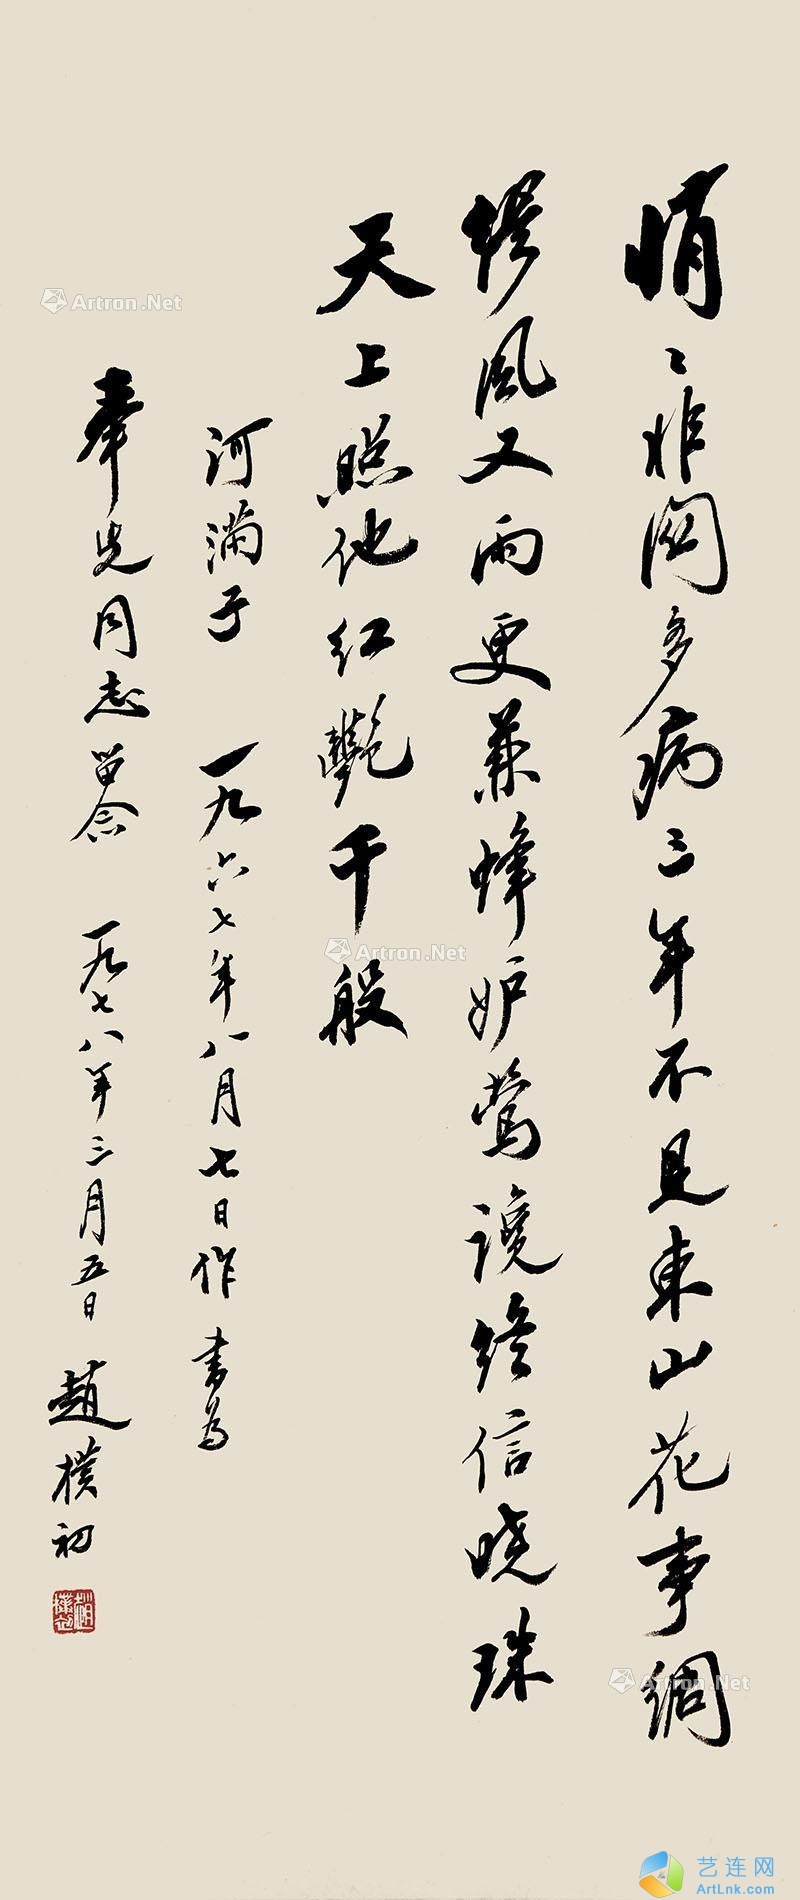 悄〻非関多病三年不見東山花事綢
缪風又雨更兼蜂妒鶯讒终信晓珠
天上照他红艷千般
河满子 一九六七年八月七日作 書为
奉先同志留念 一九七八年三月五日 趙樸初
趙樸初
Artron.Net
Artron.Net
Artron.Net
艺连网
ArtLnk.com